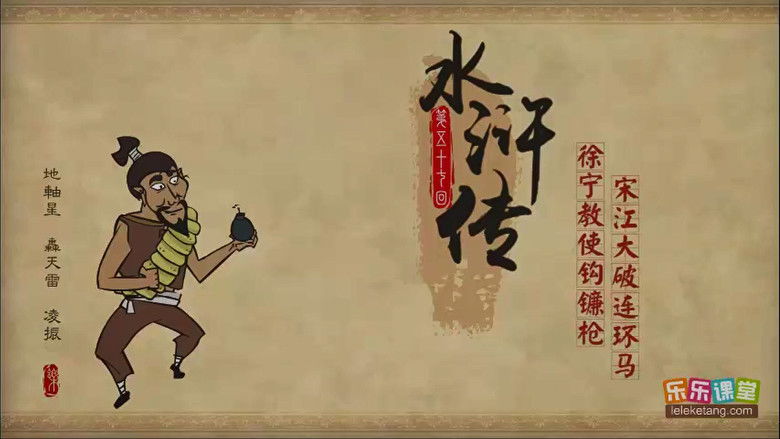 水浒传
第五十七回
徐宁教使钩镰枪
宋江大破连环马
地軸星 轟天雷 凌振
乐乐课堂
leleketang.com